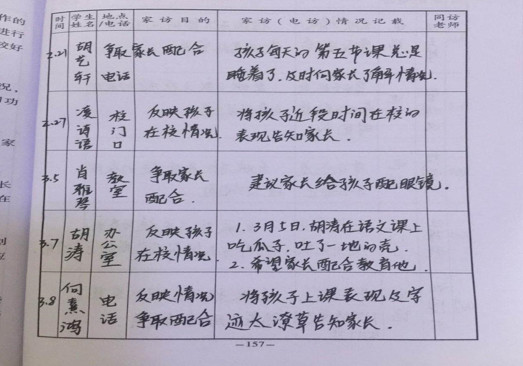 时间 学生姓名 地点/电话 家访目的 家访（电访）情况记载 同访老师
2.21 胡艺轩 电话 争取家长配合 孩子每天的第五节课总是
睡着了，及时向家长了解情况.
2.27 语语 校门口 反映孩子在校情况. 将孩子近段时间在校的
表现告知家长.
3.5 肖雅琴 教室 争取家长配合. 建议家长给孩子配眼镜.
3.7 胡涛 办公室 反映孩子在校情况. 1. 3月5日,胡涛在语文课上
吃瓜子,吐了一地的壳.
2. 希望家长配合教育他.
3.8 何熹鸿 电话 反映情况争取配合 将孩子上课表现及字
迹太潦草告知家长.
—157—